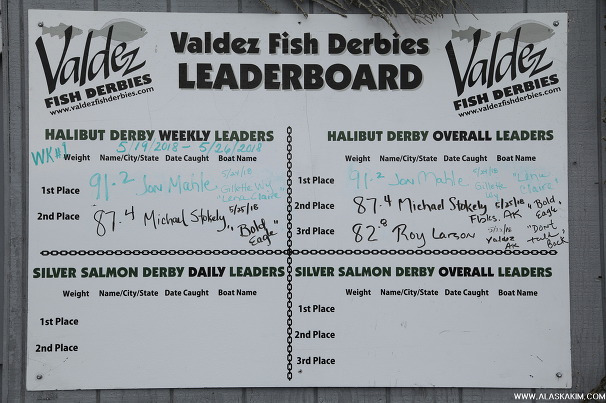 Valdez
FISH DERBIES
www.valdezfishderbies.com
Valdez Fish Derbies
LEADERBOARD
Valdez
FISH DERBIES
www.valdezfishderbies.com
HALIBUT DERBY WEEKLY LEADERS
WK#1 5/19/2018 - 5/26/2018
Weight Name/City/State Date Caught Boat Name
1st Place 91.2 Jon Mahle Gillette Wy "Lena Claire"
2nd Place 87.4 Michael Stokely 5/25/18 "Bold Eagle"
HALIBUT DERBY OVERALL LEADERS
Weight Name/City/State Date Caught Boat Name
1st Place 91.2 Jon Mahle Gillette Wy "Lena Claire"
2nd Place 87.4 Michael Stokely 5/25/18 "Bold Eagle"
Fbks. AK
3rd Place 82.8 Roy Larson Valdez AK "Don't talk Back"
SILVER SALMON DERBY DAILY LEADERS
Weight Name/City/State Date Caught Boat Name
1st Place
2nd Place
SILVER SALMON DERBY OVERALL LEADERS
Weight Name/City/State Date Caught Boat Name
1st Place
2nd Place
3rd Place
WWW.ALASKAKIM.COM